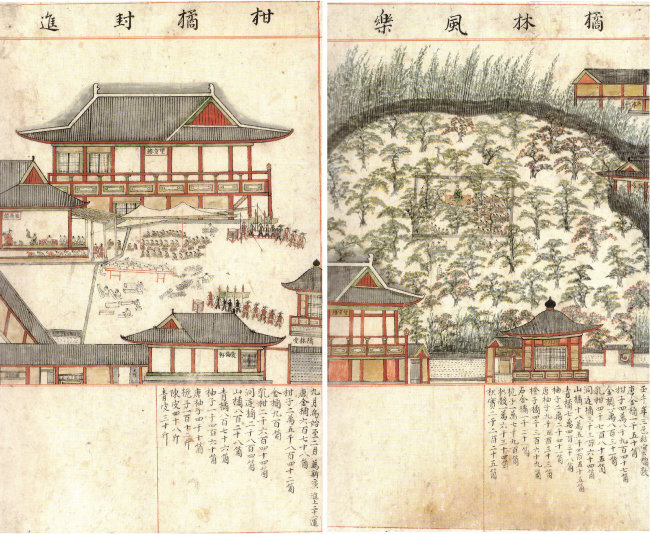 柑橘封進
望京樓
橘林堂
九月爲始至二月 薦新及 進上二十一運
唐金橘六百七十八箇
柑子二萬五千八百四十二箇
金橘九百箇
乳柑二千六百四十四箇
洞庭橘二千八百四箇
山橘八百二十八箇
靑橘八百七十六箇
柚子一千四百六十箇
唐柚子四千十箇
梔子一百十二斤
陳皮四十八斤
靑皮三十斤
橘林風樂
壬午年三邑結實都數
唐金橘一千五十箇
柑子四萬八千九百四十七箇
乳柑四千七百八十五箇
洞庭橘三千三百六十四箇
山橘十八萬五千四百五十五箇
靑橘七萬四百三十八箇
唐柚子九千五百三十三箇
橙子橘四千三百六十九箇
石金橘一千二十一箇
枳殼一萬六千三十四箇
枳實二千二百二十五箇